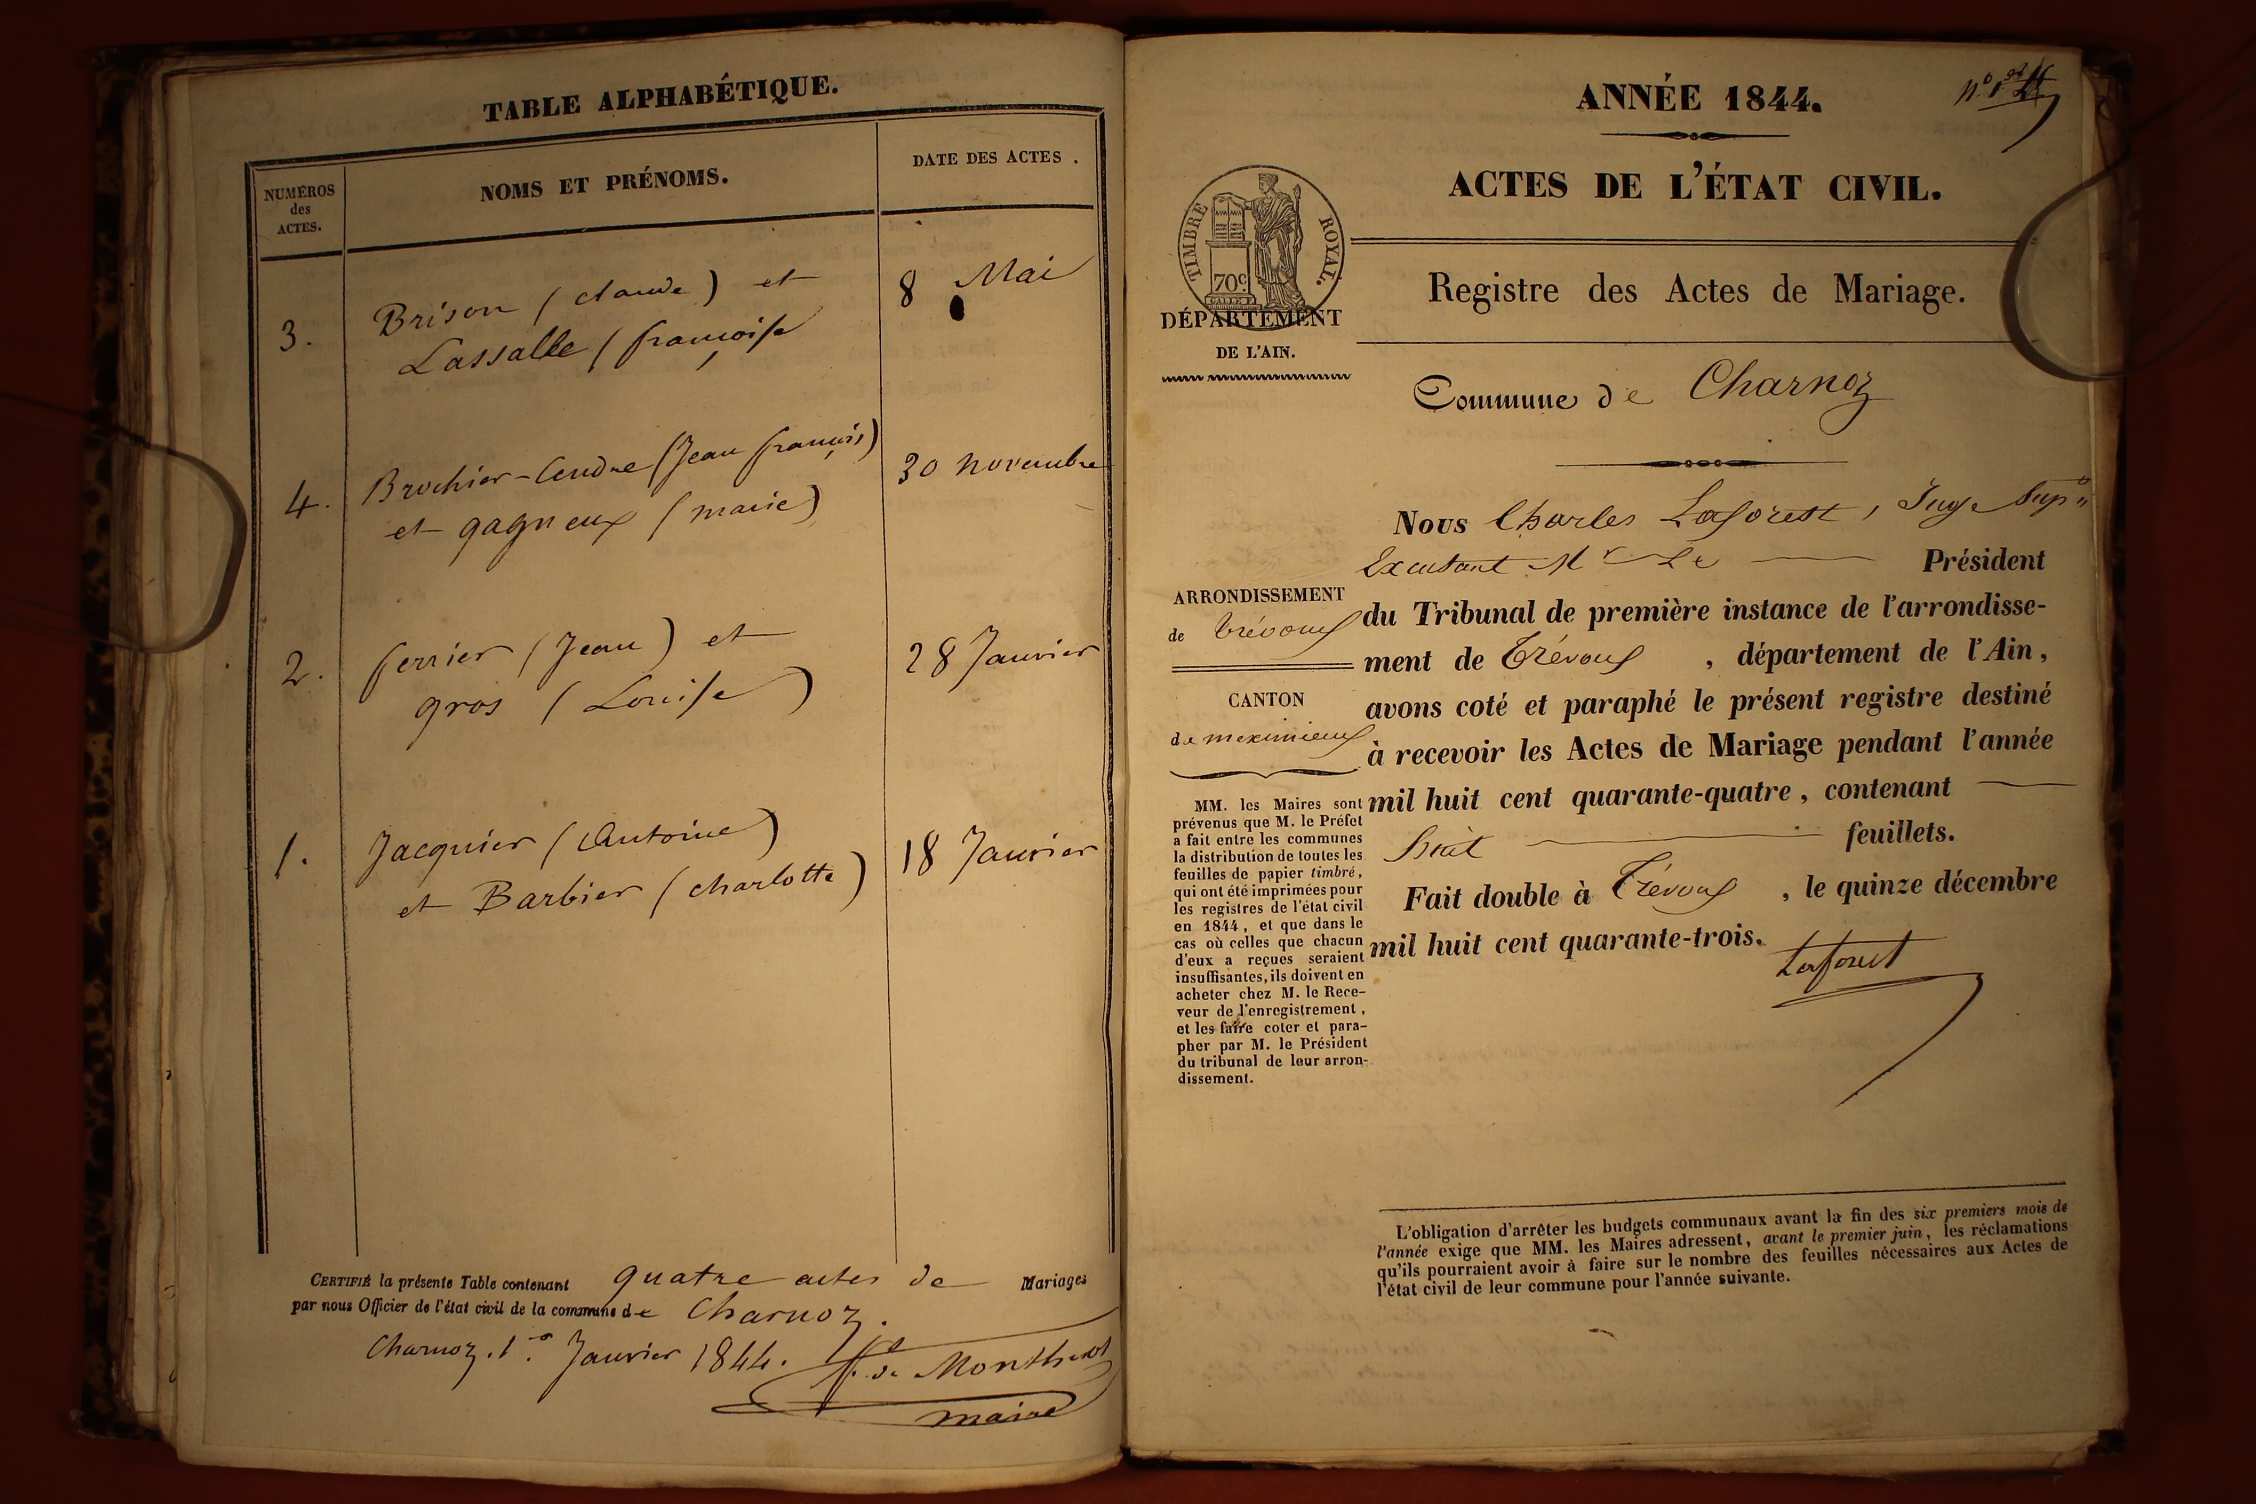 TABLE ALPHABÉTIQUE.
NUMÉROS
des
ACTES.
NOMS ET PRÉNOMS.
DATE DES ACTES.
3. Brison (claude) et 8 Mai
Lassalle (françoise
4. Brochier-Cendre (Jean françois) 30 novembre
et gagneux (marie)
2. ferrier (Jean) et 28 Janvier
gros (Louise)
1. Jacquier (Antoine) 18 Janvier
et Barbier (charlotte)
CERTIFIÉ la présente Table contenant quatre actes de Mariages
par nous Officier de l'état civil de la commune de Charnoz.
Charnoz. 1er Janvier 1844. de Montherot
maire
ANNÉE 1844.
ACTES DE L'ÉTAT CIVIL.
TIMBRE ROYAL.
70c.
DÉPARTEMENT
DE L'AIN.
Registre des Actes de Mariage.
Commune de Charnoz
Nous Charles Laforest, Juge Supt
Excusant Mr Le Président
ARRONDISSEMENT
de Trévoux
CANTON
de meximieux
du Tribunal de première instance de l'arrondisse-
ment de Trévoux, département de l'Ain,
avons coté et paraphé le présent registre destiné
à recevoir les Actes de Mariage pendant l'année
mil huit cent quarante-quatre, contenant
huit feuillets.
Fait double à Trévoux, le quinze décembre
mil huit cent quarante-trois.
Laforest
MM. les Maires sont
prévenus que M. le Préfet
a fait entre les communes
la distribution de toutes les
feuilles de papier timbré,
qui ont été imprimées pour
les registres de l'état civil
en 1844, et que dans le
cas où celles que chacun
d'eux a reçues seraient
insuffisantes, ils doivent en
acheter chez M. le Rece-
veur de l'enregistrement,
et les faire coter et para-
pher par M. le Président
du tribunal de leur arron-
dissement.
L'obligation d'arrêter les budgets communaux avant la fin des six premiers mois de
l'année exige que MM. les Maires adressent, avant le premier juin, les réclamations
qu'ils pourraient avoir à faire sur le nombre des feuilles nécessaires aux Actes de
l'état civil de leur commune pour l'année suivante.